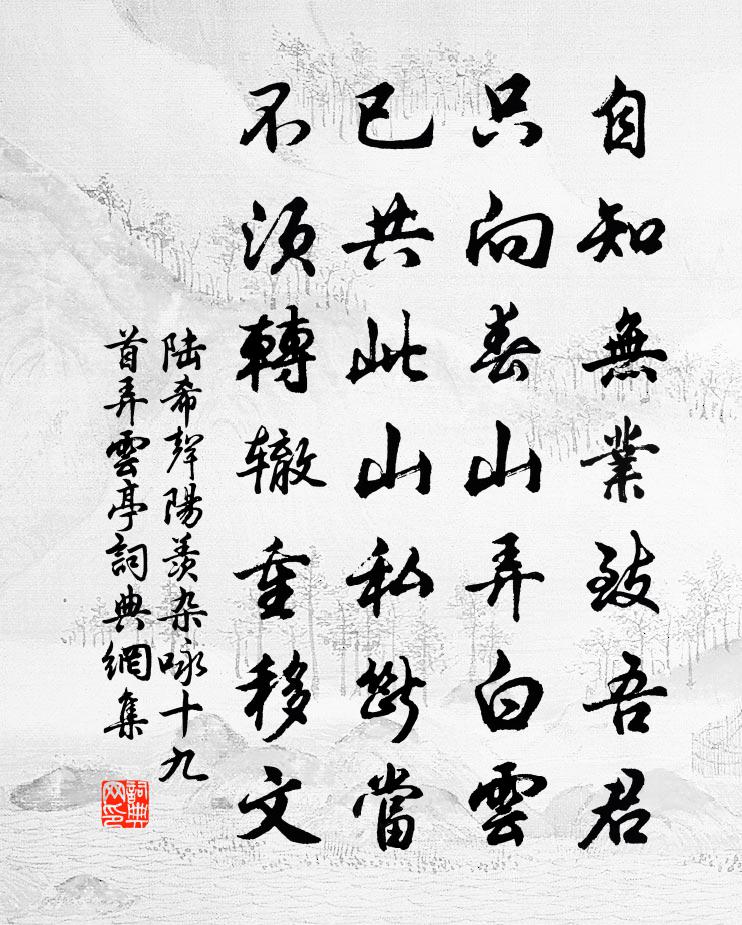 自知無業致吾君
只向春山弄白雲
已共此山私斷當
不須轉轍重移文
陸希聲陽羨杂咏十九
首弄雲亭詞典網集
詞典网印